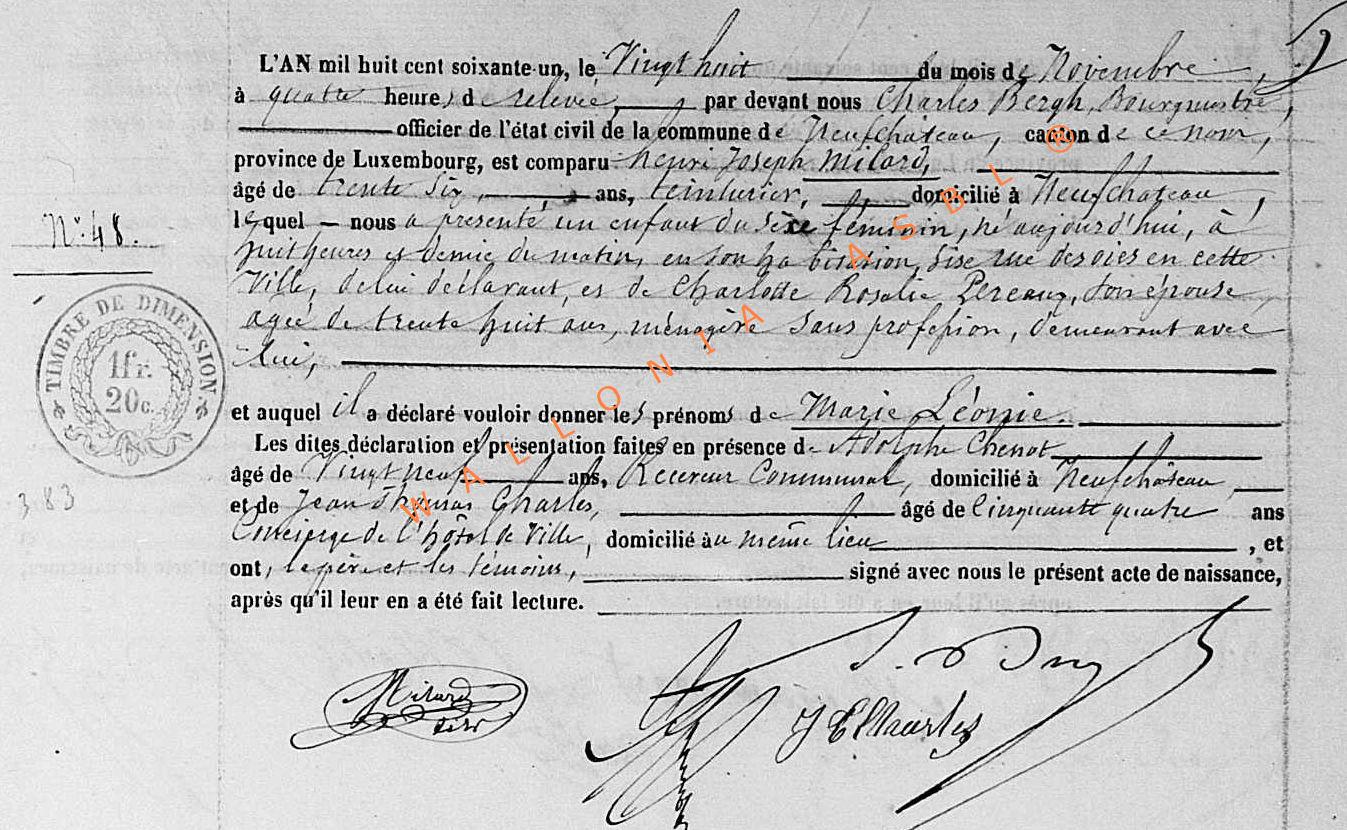 L'AN mil huit cent soixante-un, le Vingt huit du mois de Novembre,
à quatre heures de relevée, par devant nous Charles Bergh, Bourgmestre,
officier de l'état civil de la commune de Neufchâteau, canton de ce nom,
province de Luxembourg, est comparu henri Joseph Milard,
âgé de trente six, ans, teinturier, domicilié à Neufchateau,
lequel – nous a présenté un enfant du sexe féminin, né aujourd'hui, à
huit heures et demie du matin, en son habitation, sise rue des oies en cette
N°: 48.
Ville, de lui déclarant, et de Charlotte Rosalie Pereaux, son épouse
agée de trente huit ans, ménagère sans profession, demeurant avec
lui,
TIMBRE DE DIMENSION
1fr.
20c.
et auquel il a déclaré vouloir donner les prénoms de Marie Léonie.
Les dites déclaration et présentation faites en présence de Adolphe Chenot
âgé de Vingt neuf ans, Receveur Communal, domicilié à Neufchâteau
383
et de Jean Thomas Charles, âgé de Cinquante quatre ans
Concierge de l'hôtel de Ville, domicilié au même lieu, et
ont, le père et les témoins, signé avec nous le présent acte de naissance,
après qu'il leur en a été fait lecture.
Milard
J Charles
WALLONIA ASBL ®